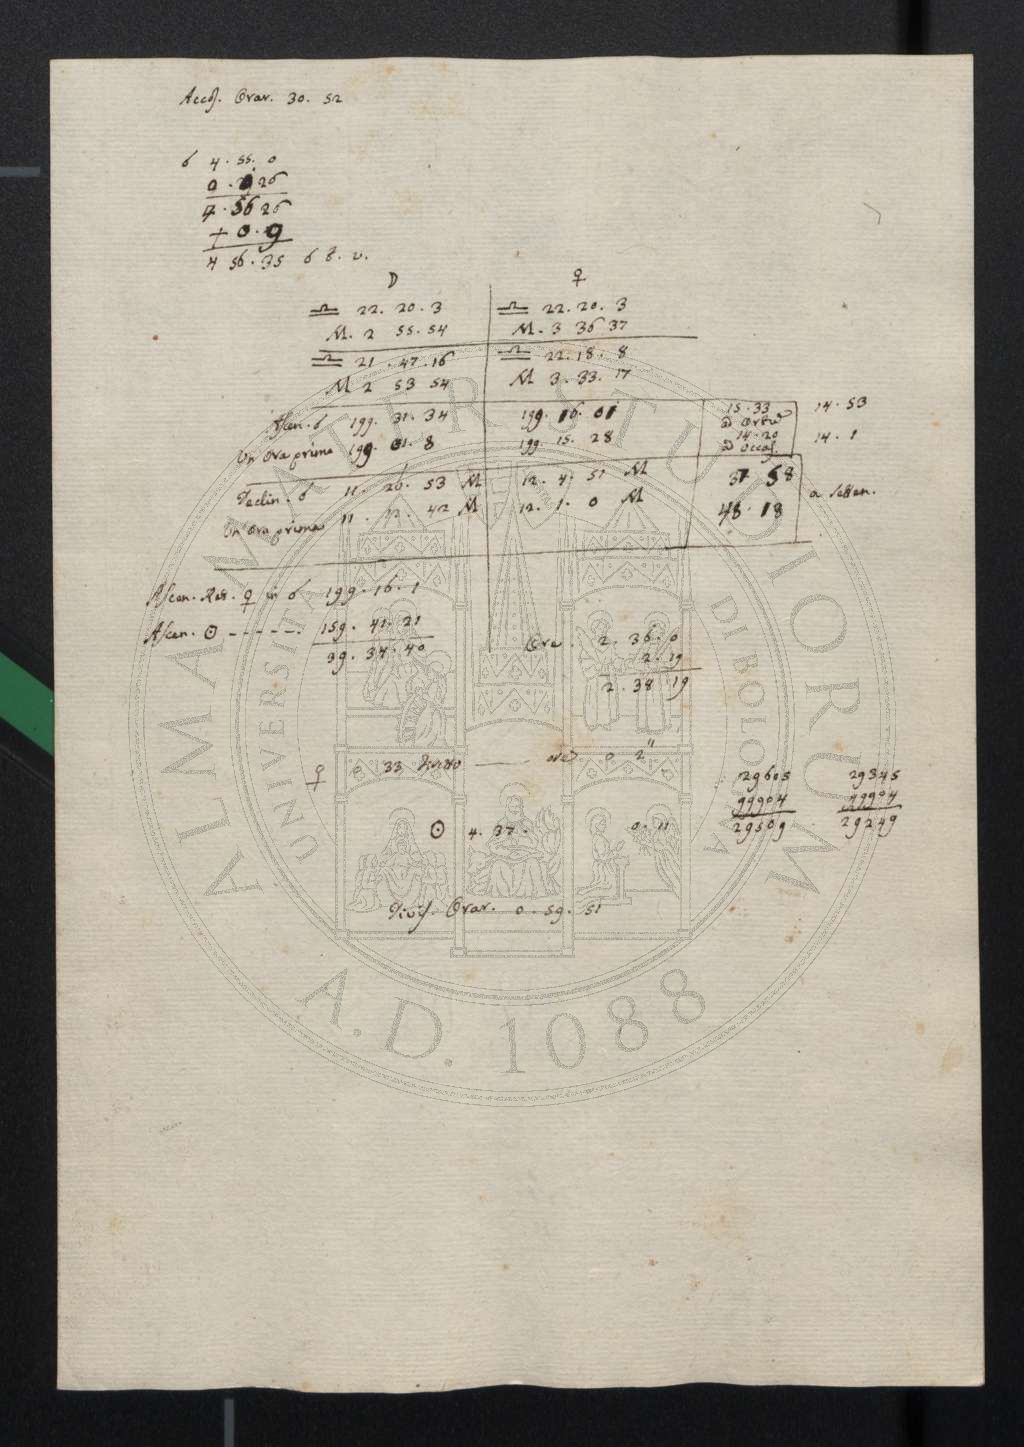 Accos. Orar. 30. 52
☌ 4. 55. 0
0. 1 26
4. 56 26
+ 0. 9
4 56. 35 ☌ ☿. v.
☽ ♀
♎ 22. 20. 3 ♎ 22. 20. 3
M. 2 55. 54 M. 3 36 37
♎ 21. 47. 16 ♎ 22. 18. 8
M 2 53 54 M 3. 33. 17
Ascen. ☌ 199. 31. 34 199. 16. 01 15. 33 14. 53
a Ortu
Un'ora prima 199. 01. 8 199. 15. 28 14. 20 14. 1
a Occas.
Declin. ☌ 11. 26. 53 M 12. 4. 51 M 37 58
a Setten.
Un'ora prima 11. 12. 42 M 12. 1. 0 M 48. 18
Ascen. Ret. ♀ in ☌ 199. 16. 1
Ascen. ☉ - - - - - . 159. 41. 21
39. 34. 40
Ore. 2. 36. 0
2. 19
2. 38. 19
♀ 0. 33 0 2"
29605 29345
99904 99904
29509 29249
☉ 4. 37. 0. 11
Orar. 0. 59. 51
ALMA MATER STUDIORUM
UNIVERSITÀ DI BOLOGNA
A.D. 1088